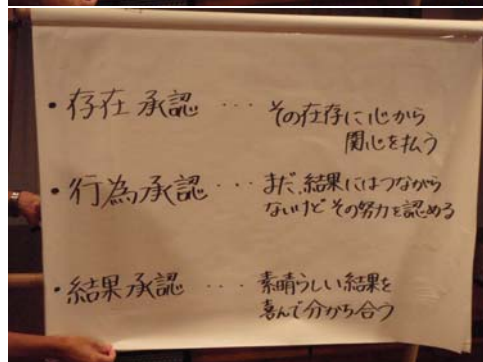 ・存在承認 ・・・ その在存に心から
関心を払う
・行為承認 ・・・ まだ、結果にはつながら
ないけど その努力を認める
・結果承認 ・・・ 素晴らしい結果を
喜んで分かち合う